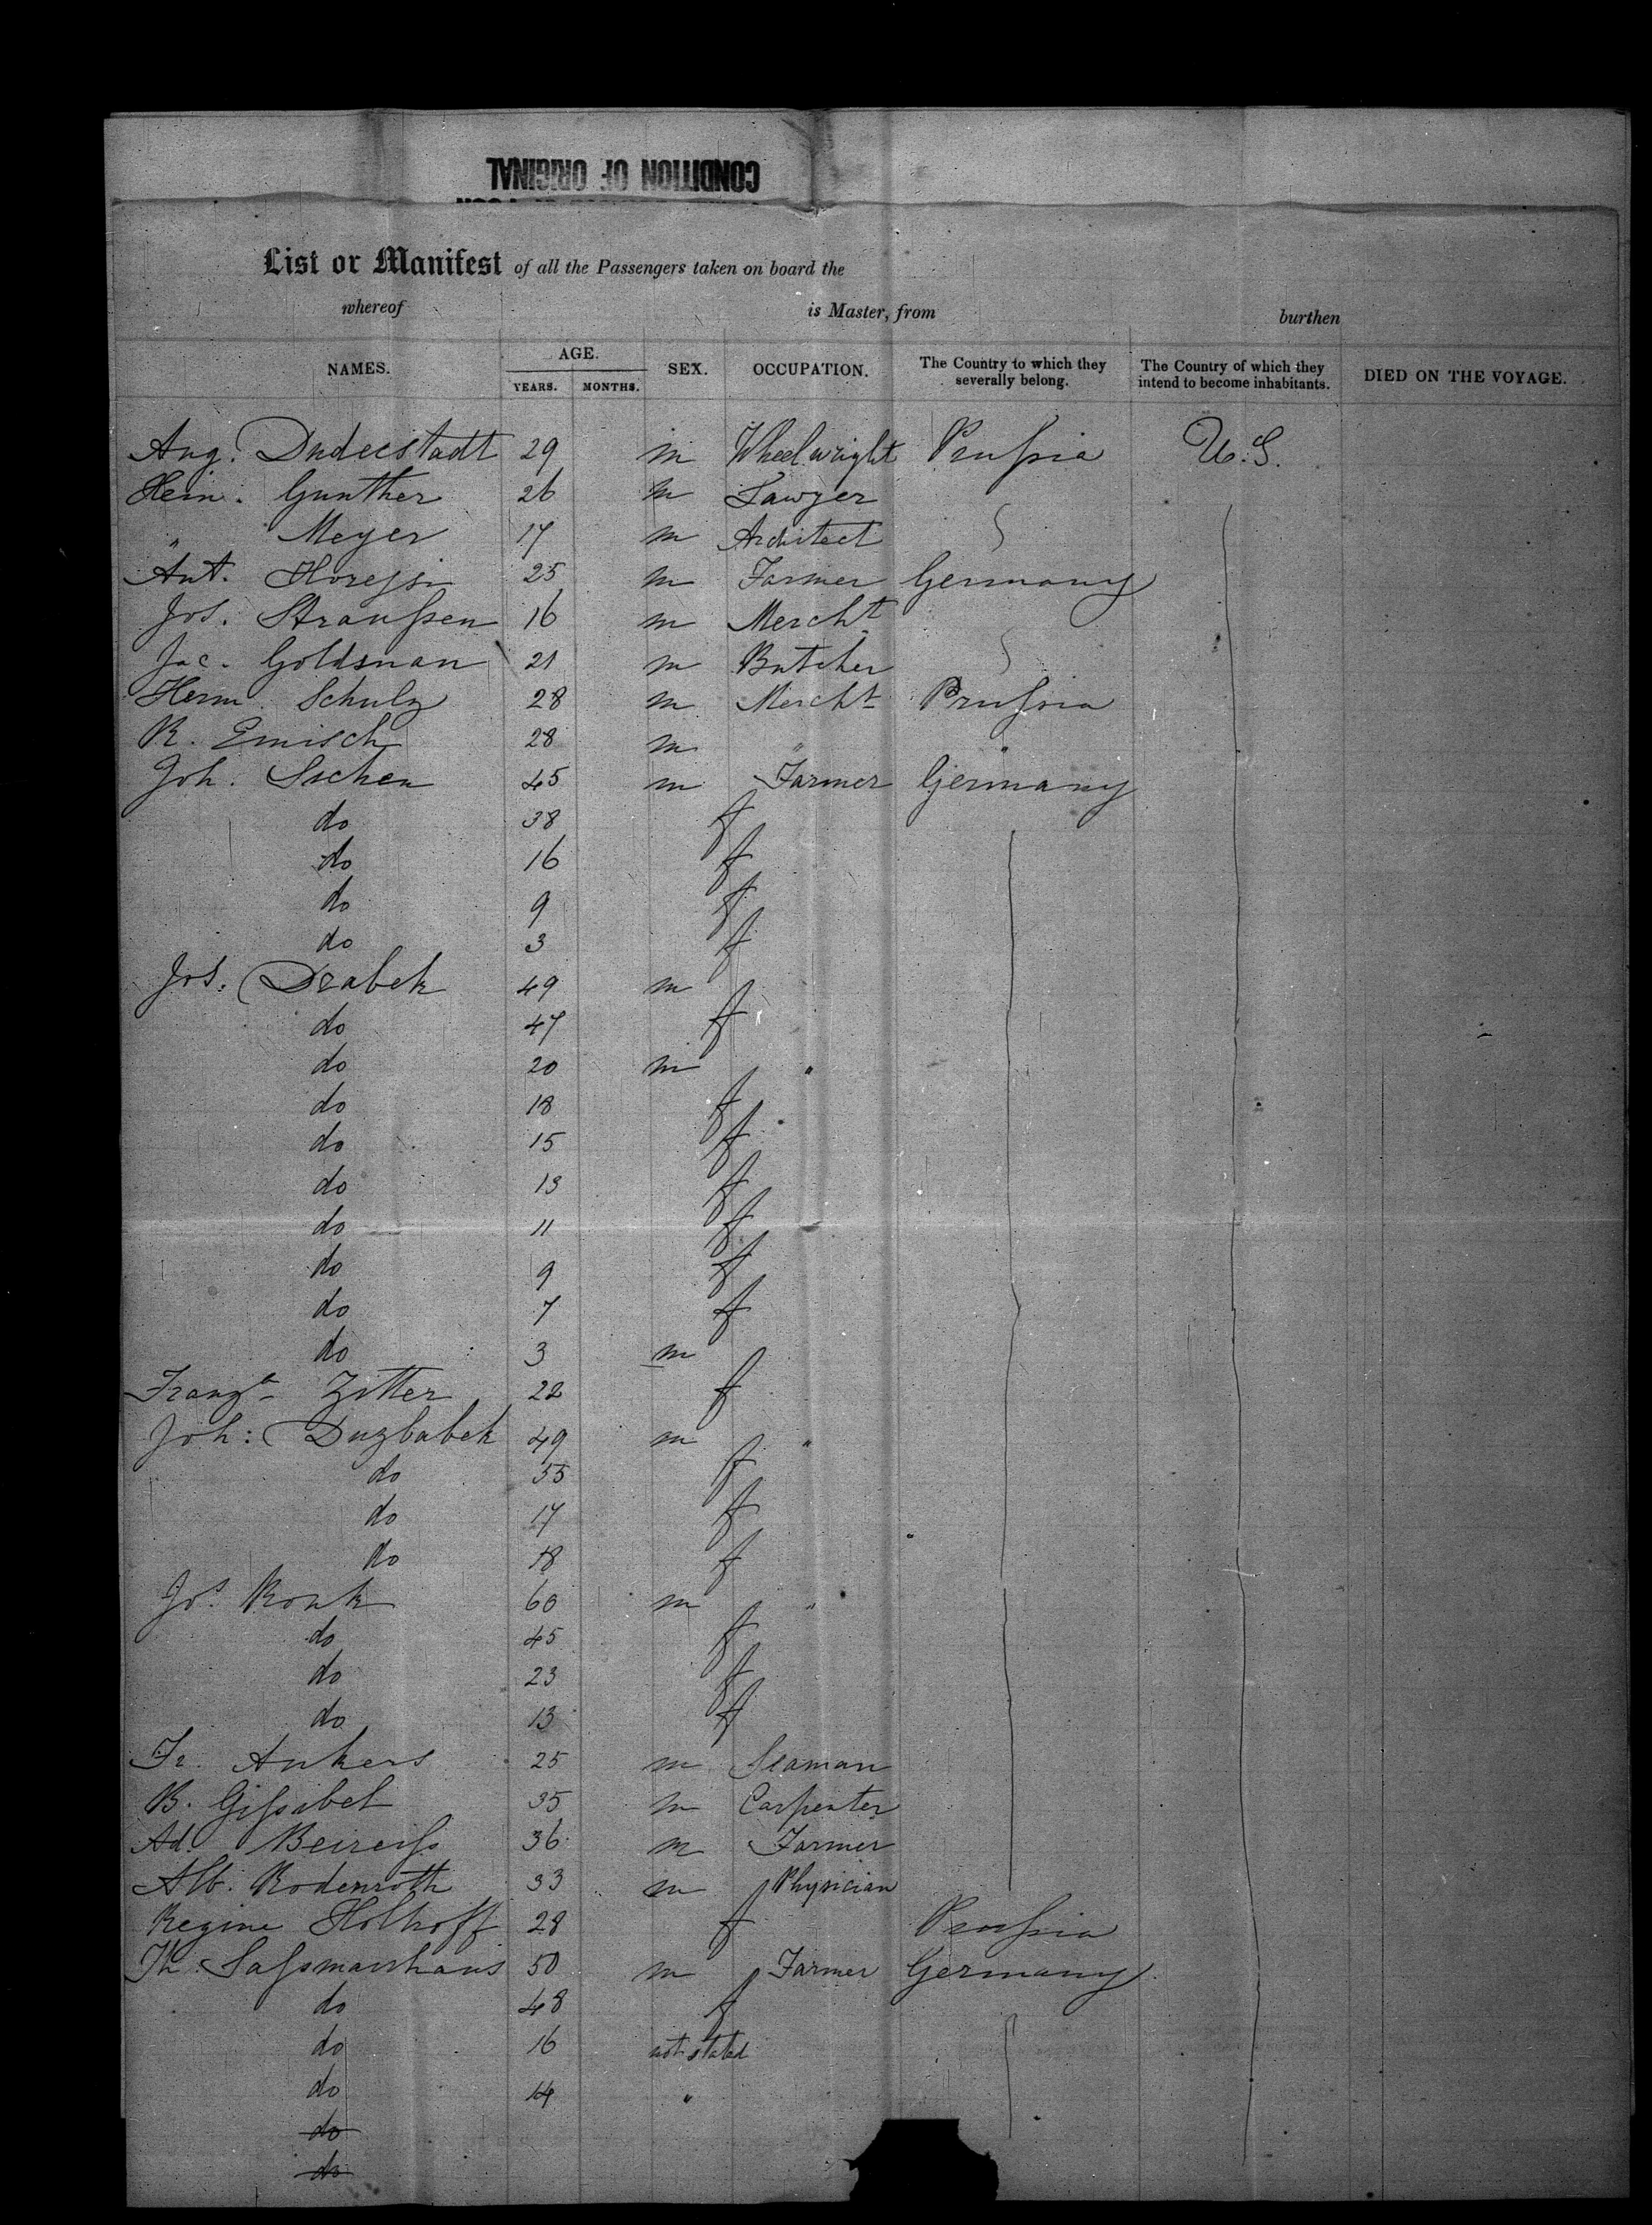 CONDITION OF ORIGINAL
List or Manifest of all the Passengers taken on board the
whereof is Master, from burthen
NAMES. AGE. YEARS. MONTHS. SEX. OCCUPATION. The Country to which they severally belong. The Country of which they intend to become inhabitants. DIED ON THE VOYAGE.
Aug. Duderstadt 29 m Wheelwright Prussia U.S.
Hein. Gunther 26 m Lawyer
" Meyer 17 m Architect
Ant. Horessi 25 m Farmer Germany
Jos. Straussen 16 m Mercht
Jac. Goldsman 21 m Butcher
Herm. Schulz 28 m Mercht Prussia
R. Emisch 28 m " "
Joh. 45 m Farmer Germany
do 38 f
do 16 f
do 9 f
do 3 f
Jos. Drabek 49 m
do 47 f
do 20 m "
do 18 f
do 15 f
do 13 f
do 11 f
do 9 f
do 7 f
do 3 m
Franza Zitter 22 f
Joh: Duzbabek 49 m "
do 55 f
do 17 f
do 18 f
Jos. Konk 60 m "
do 45 f
do 23 f
do 13 f
Fr. Ankers 25 m Seaman
B. Gissibel 35 m Carpenter
Ad. Beireiss 36 m Farmer
Alb. Rodenroth 33 m Physician
Regine Holthoff 28 f Prussia
Th. Sassmanshaus 50 m Farmer Germany
do 48 f
do 16 not stated
do 14 "
do
do